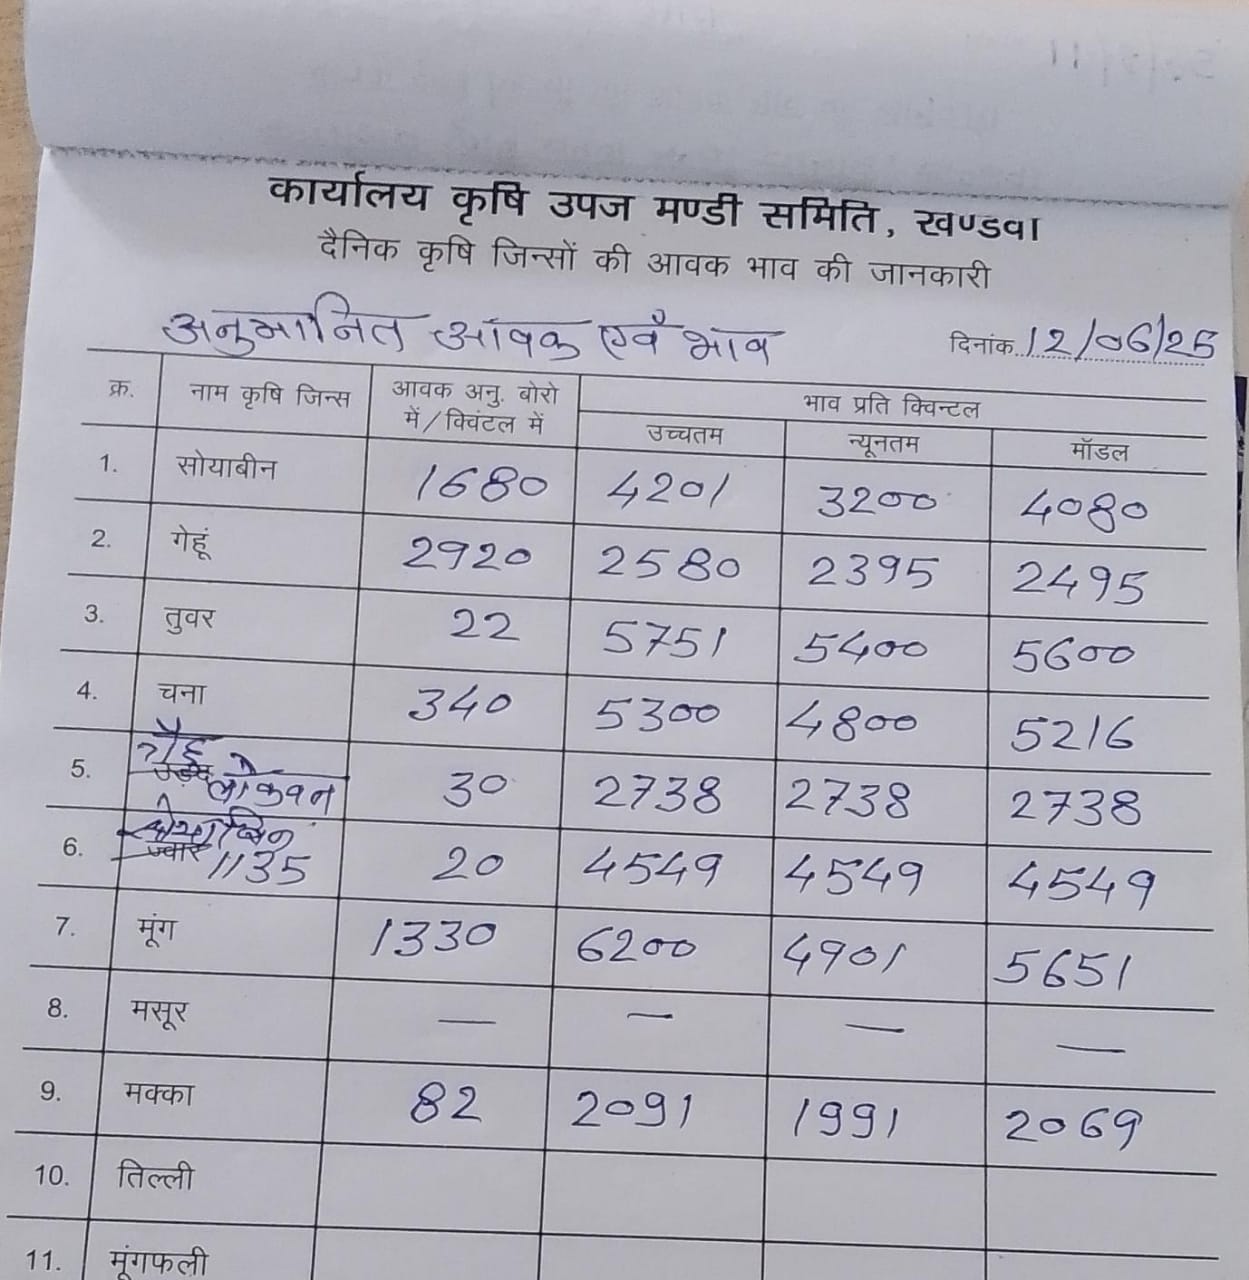 कार्यालय कृषि उपज मण्डी समिति, खण्डवा
दैनिक कृषि जिन्सों की आवक भाव की जानकारी
अनुमानित आवक एवं भाव दिनांक 12/06/25
क्र. नाम कृषि जिन्स आवक अनु. बोरो में/क्विंटल में भाव प्रति क्विन्टल
उच्चतम न्यूनतम मॉडल
1. सोयाबीन 1680 4201 3200 4080
2. गेहूं 2920 2580 2395 2495
3. तुवर 22 5751 5400 5600
4. चना 340 5300 4800 5216
5. उड़द गेहूं लोकवन 30 2738 2738 2738
6. ज्वार सोयाबिन 1135 20 4549 4549 4549
7. मूंग 1330 6200 4901 5651
8. मसूर — — — —
9. मक्का 82 2091 1991 2069
10. तिल्ली
11. मूंगफली